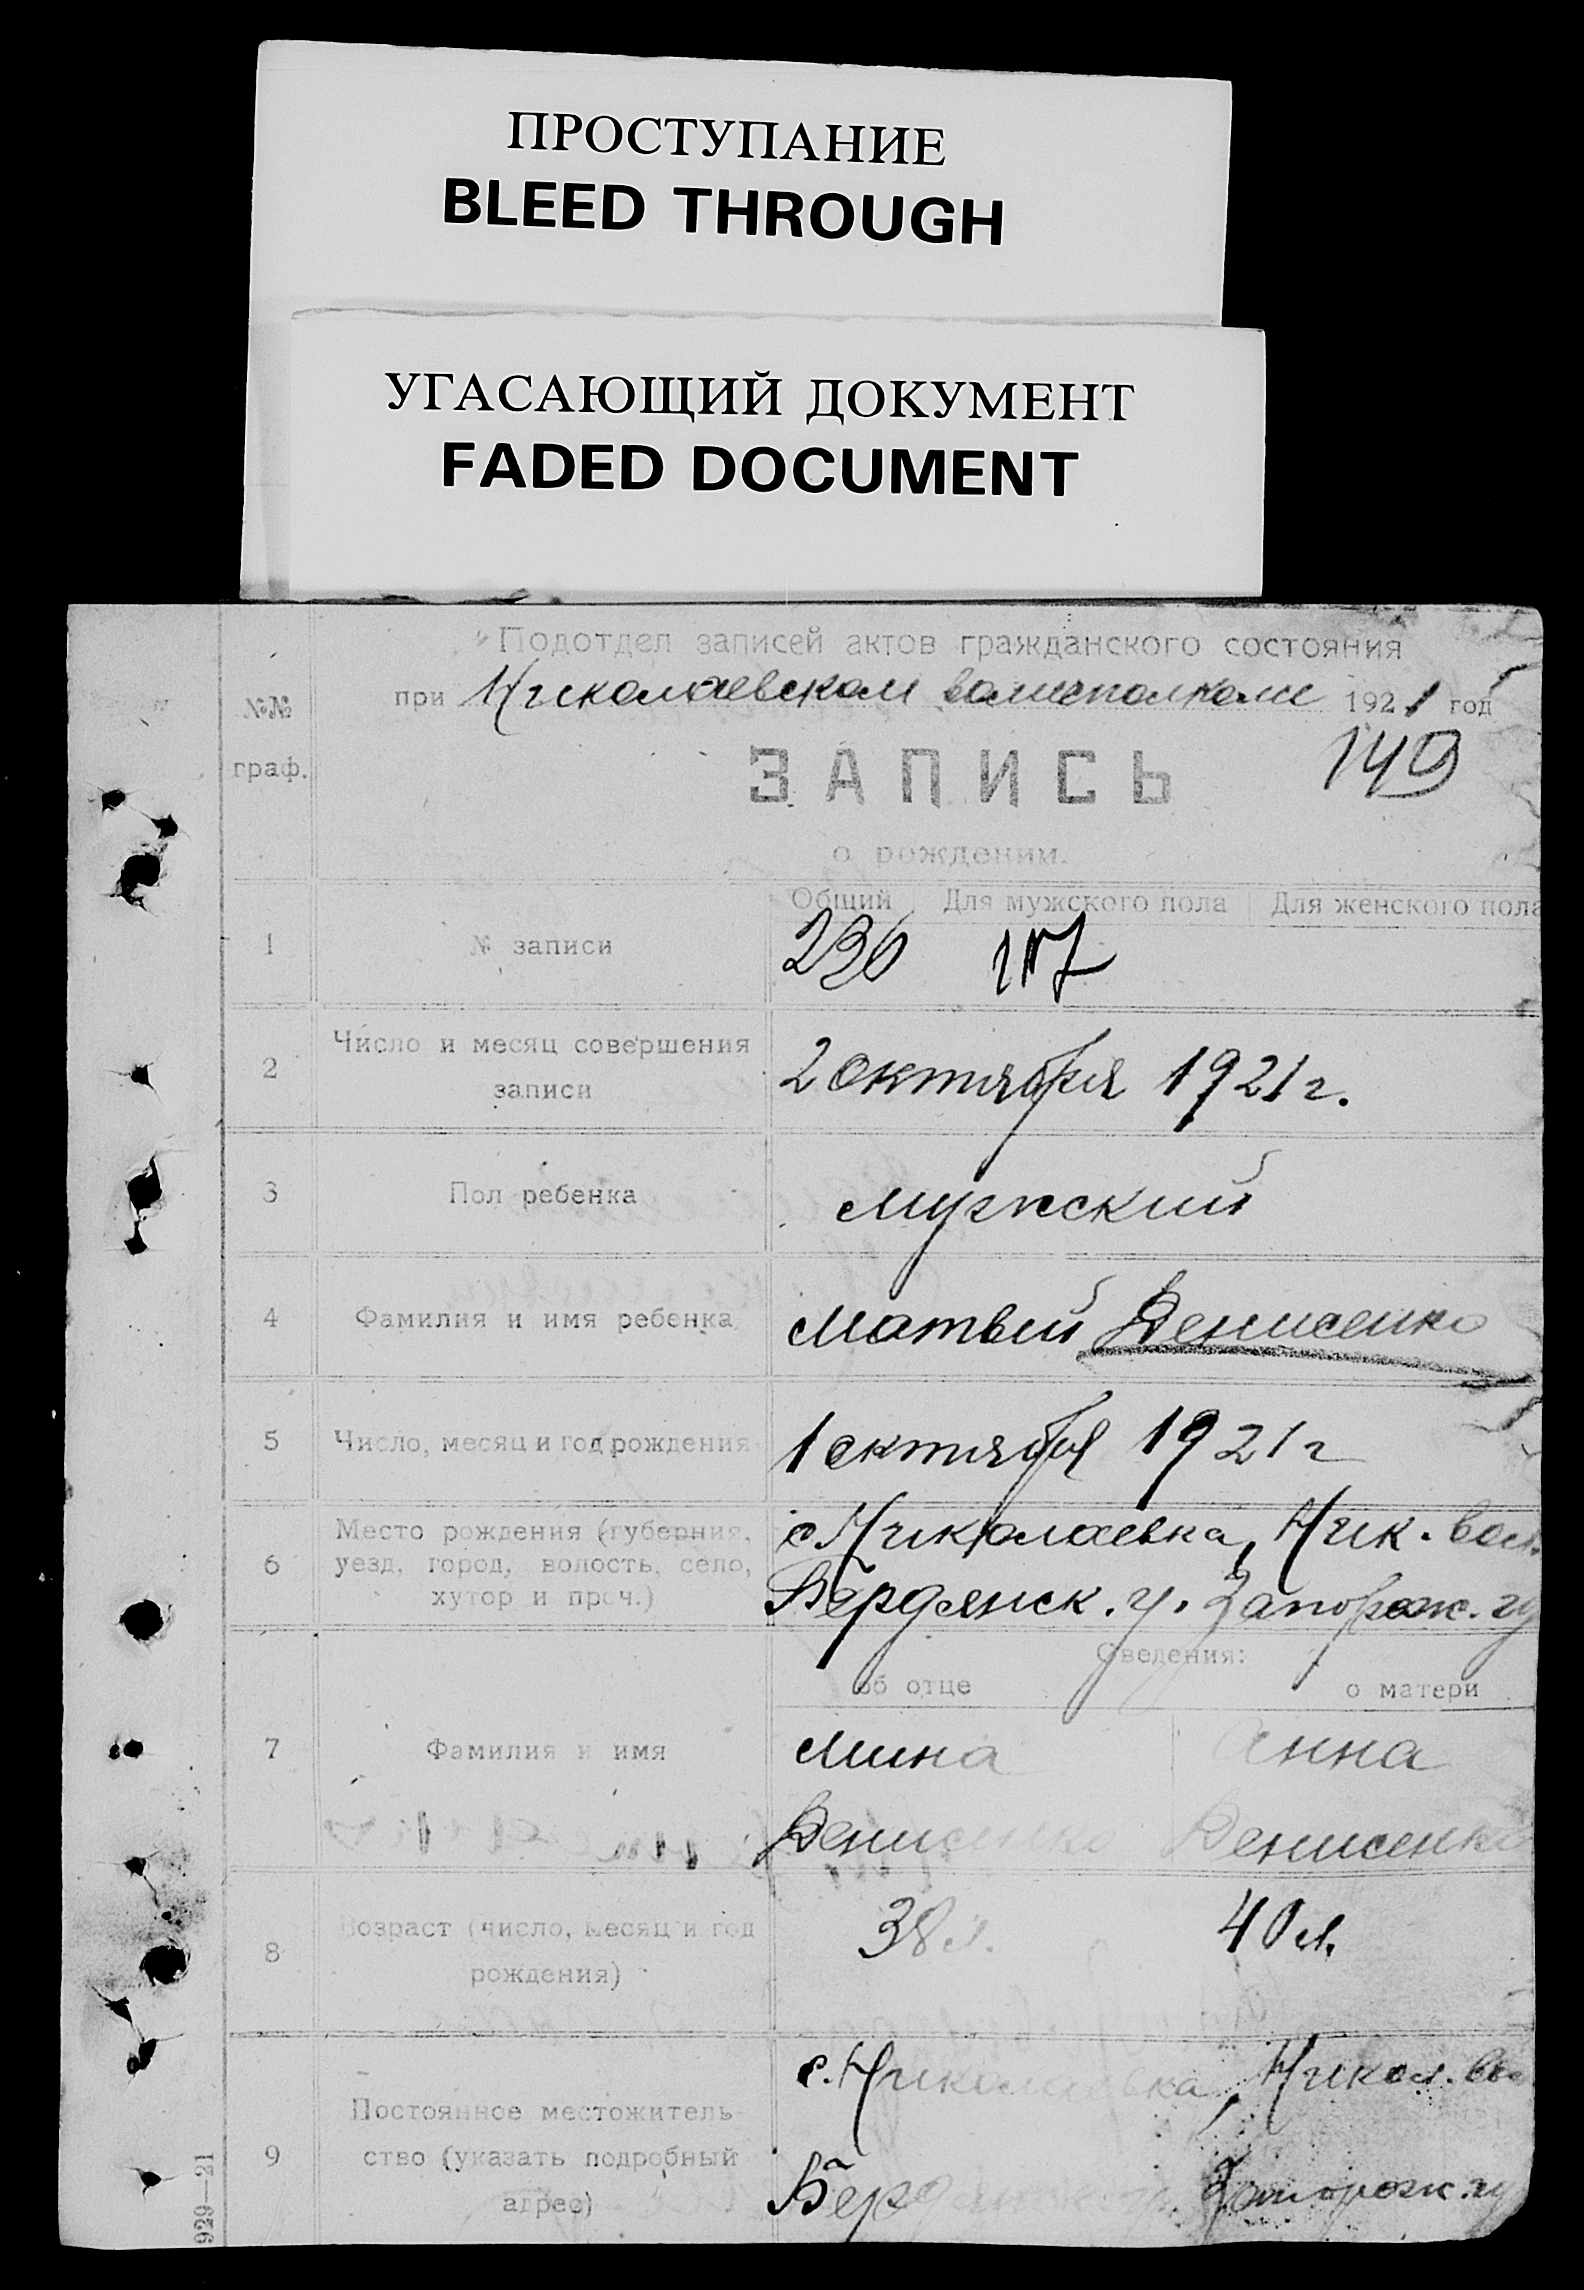 ПРОСТУПАНИЕ
BLEED THROUGH
УГАСАЮЩИЙ ДОКУМЕНТ
FADED DOCUMENT
Подотдел записей актов гражданского состояния
при Николаевском волисполкоме 1921 год
№№ граф.
ЗАПИСЬ
149
о рождении.
Общий Для мужского пола Для женского пола
1 № записи 236 117
2 Число и месяц совершения записи 2 октября 1921 г.
3 Пол ребенка мужский
4 Фамилия и имя ребенка Матвей Денисенко
5 Число, месяц и год рождения 1 октября 1921 г
6 Место рождения (губерния, с Николаевка, Ник. вол.
уезд, город, волость, село,
хутор и проч.) Бердянск. у. Запорож. гу
Сведения:
об отце о матери
7 Фамилия и имя Мина Анна
Денисенко Денисенко
8 Возраст (число, месяц и год рождения) 38 л. 40 л.
9 Постоянное местожитель с. Николаевка, Никол. во
ство (указать подробный
адрес) Бердянск. у. Запорож. гу
929—21